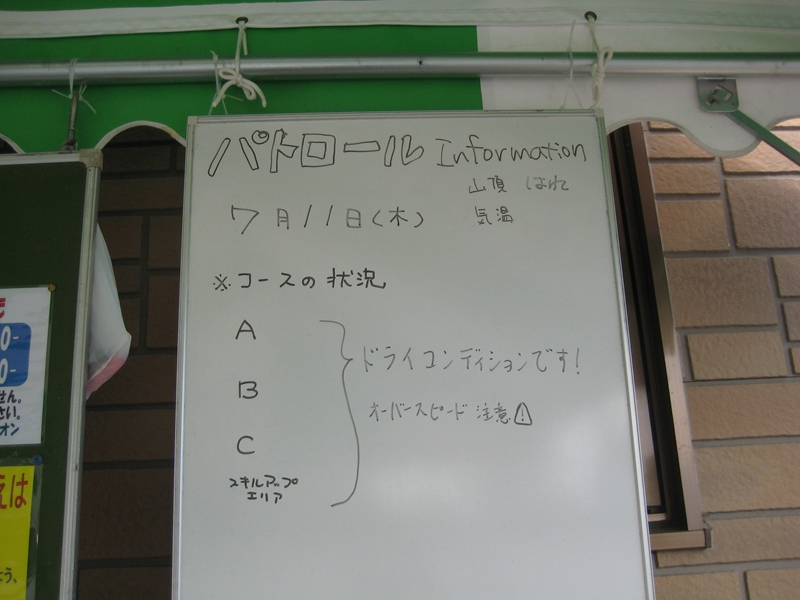 パトロール Information
山頂 はれ
7月11日(木) 気温
※コースの状況
A
B
C
スキルアップ
エリア
ドライコンディションです!
オーバースピード 注意⚠
0-
0-
せん。
さい。
オン
えは
よう、